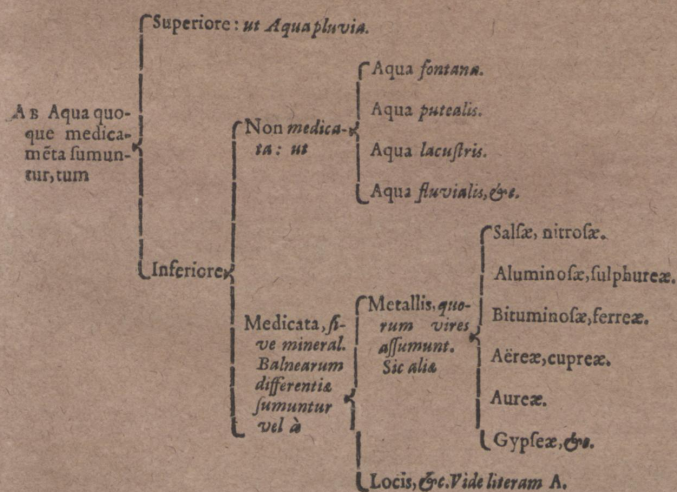 AB Aqua quo-
que medica-
mẽta ſumun-
tur, tum
Superiore: ut Aqua pluvia.
Inferiore
Non medica-
ta: ut
Aqua fontana.
Aqua putealis.
Aqua lacuſtris.
Aqua fluvialis, &c.
Medicata, ſi-
ve mineral.
Balnearum
differentiæ
ſumuntur
vel à
Metallis, quo-
rum vires
aſſumunt.
Sic aliæ
Salſæ, nitroſæ.
Aluminoſæ, ſulphureæ.
Bituminoſæ, ferreæ.
Aëreæ, cupreæ.
Aureæ.
Gypſeæ, &c.
Locis, &c. Vide literam A.